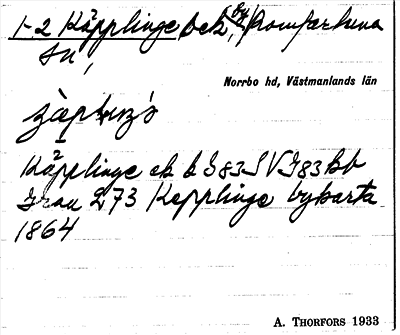 1-2 Käpplinge bek, by, Romfartuna
sn,
Norrbo hd, Västmanlands län
Käpplinge ek b S83SVJ83bb
Gran 273 Kepplinge bykarta
1864
A. THORFORS 1933